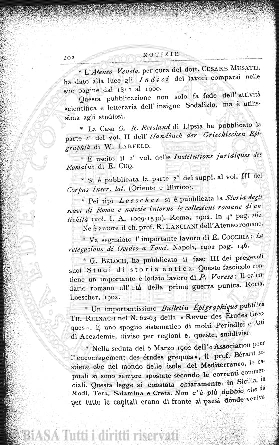 202 NOTIZIE
* L'Ateneo Veneto, per cura del dott. CESARE MUSATTI,
ha dato alla luce gli Indici dei lavori comparsi nelle
sue pagine dal 1812 al 1900.
Questa pubblicazione non solo fa fede dell'attività
scientifica e letteraria dell'insigne Sodalizio, ma è utilis-
sima agli studiosi.
* La Casa G. R. Reisland di Lipsia ha pubblicato la
parte 2ª del vol. II dell'Handbuch der Griechischen Epi-
graphik di W. LARFELD.
* È uscito il 2° vol. delle Institutions juridiques des
Romains di E. Cuq.
* Si è pubblicata la parte 2ª dei suppl. al vol. III del
Corpus Inscr. lat. (Oriente e Illirico).
* Pei tipi Loescher si è pubblicata la Storia degli
scavi di Roma e notizie intorno le collezioni romane di an-
tichità (vol. I, A. 1000-1530). Roma, 1902. In 4° pag.
Ne è autore il ch. prof. R. LANCIANI dell'Ateneo romano.
* Va segnalato l'importante lavoro di E. COCCHIA: La
relegazione di Ovidio a Tomi. Napoli, 1902 pag. 146.
* G. BELOCH, ha pubblicato il fasc. III dei pregevoli
suoi Studi di storia antica. Questo fascicolo con-
tiene un importante e lodato lavoro di P. Varese: Il calen-
dario romano all'età della prima guerra punica. Roma,
Loescher, 1902.
* Un importantissimo Bulletin Epigraphique pubblica
TH. REINACH nel N. della « Revue des Études Grec-
ques ». È uno spoglio sistematico di molti Periodici e Atti
di Accademie, diviso per regioni e, queste, suddivise.
* Nella seduta del 6 Marzo 1902 dell'« Association pour
l'encouragement des études grecques », il prof. Bérard so-
stiene che nel mondo delle isole del Mediterraneo, le ca-
pitali si sono sempre spostate secondo le correnti commer-
ciali. Questa legge si constata chiaramente in Sicilia, in
Rodi, Tera, Salamina e Creta. Non c'è più dubbio che
per tutte le capitali erano di fronte al paese donde veniva
BIASA Tutti i diritti riservati